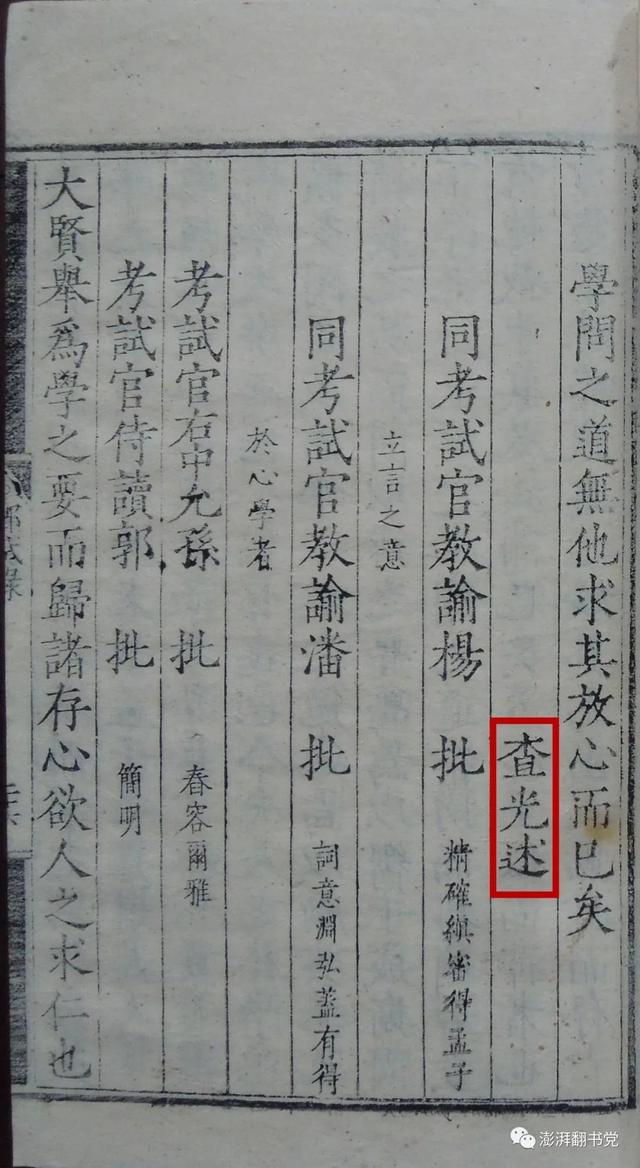 學問之道無他求其放心而已矣
查光述
同考試官教諭楊 批 精確縝密得孟子
立言之意
同考試官教諭潘 批 詞意淵弘蓋有得
於心學者
考試官右中允孫 批 春容爾雅
考試官侍讀郭 批 簡明
大賢舉為學之要而歸諸存心欲人之求仁也
澎湃翻书党